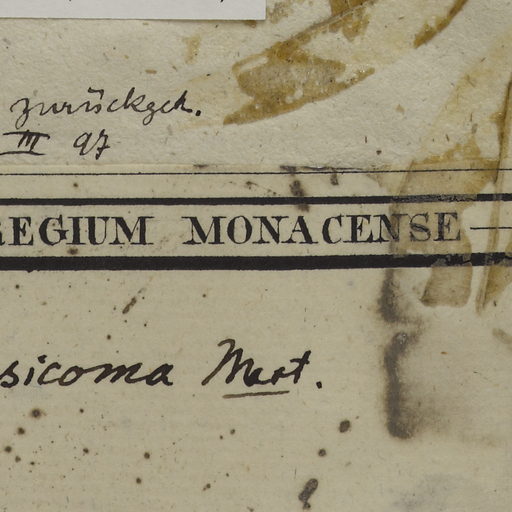 zurückgeh.
III 97
REGIUM MONACENSE
sicoma Mart.